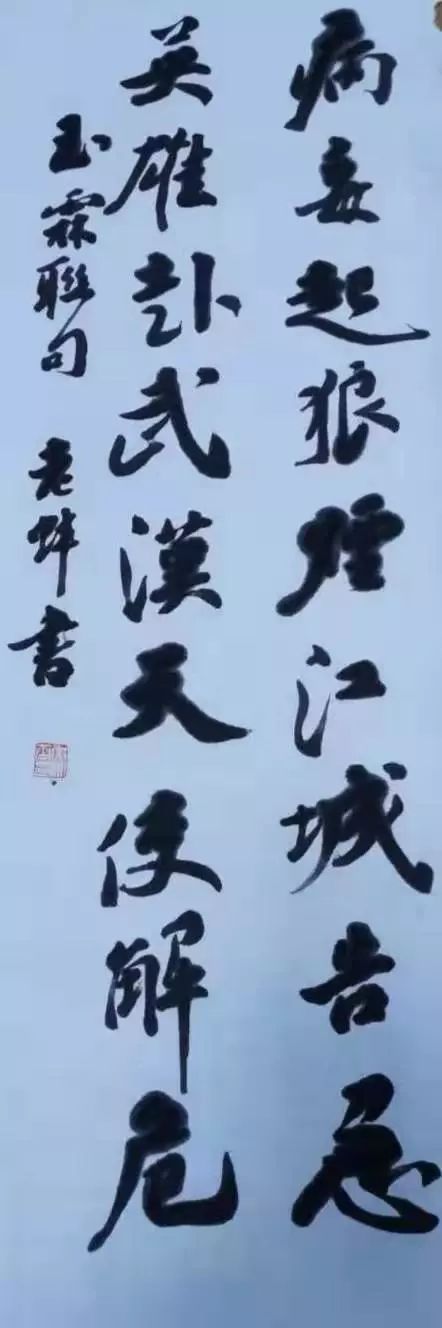 病毒起狼煙江城告急
英雄赴武漢天使解危
玉霖聯句 老蚌書